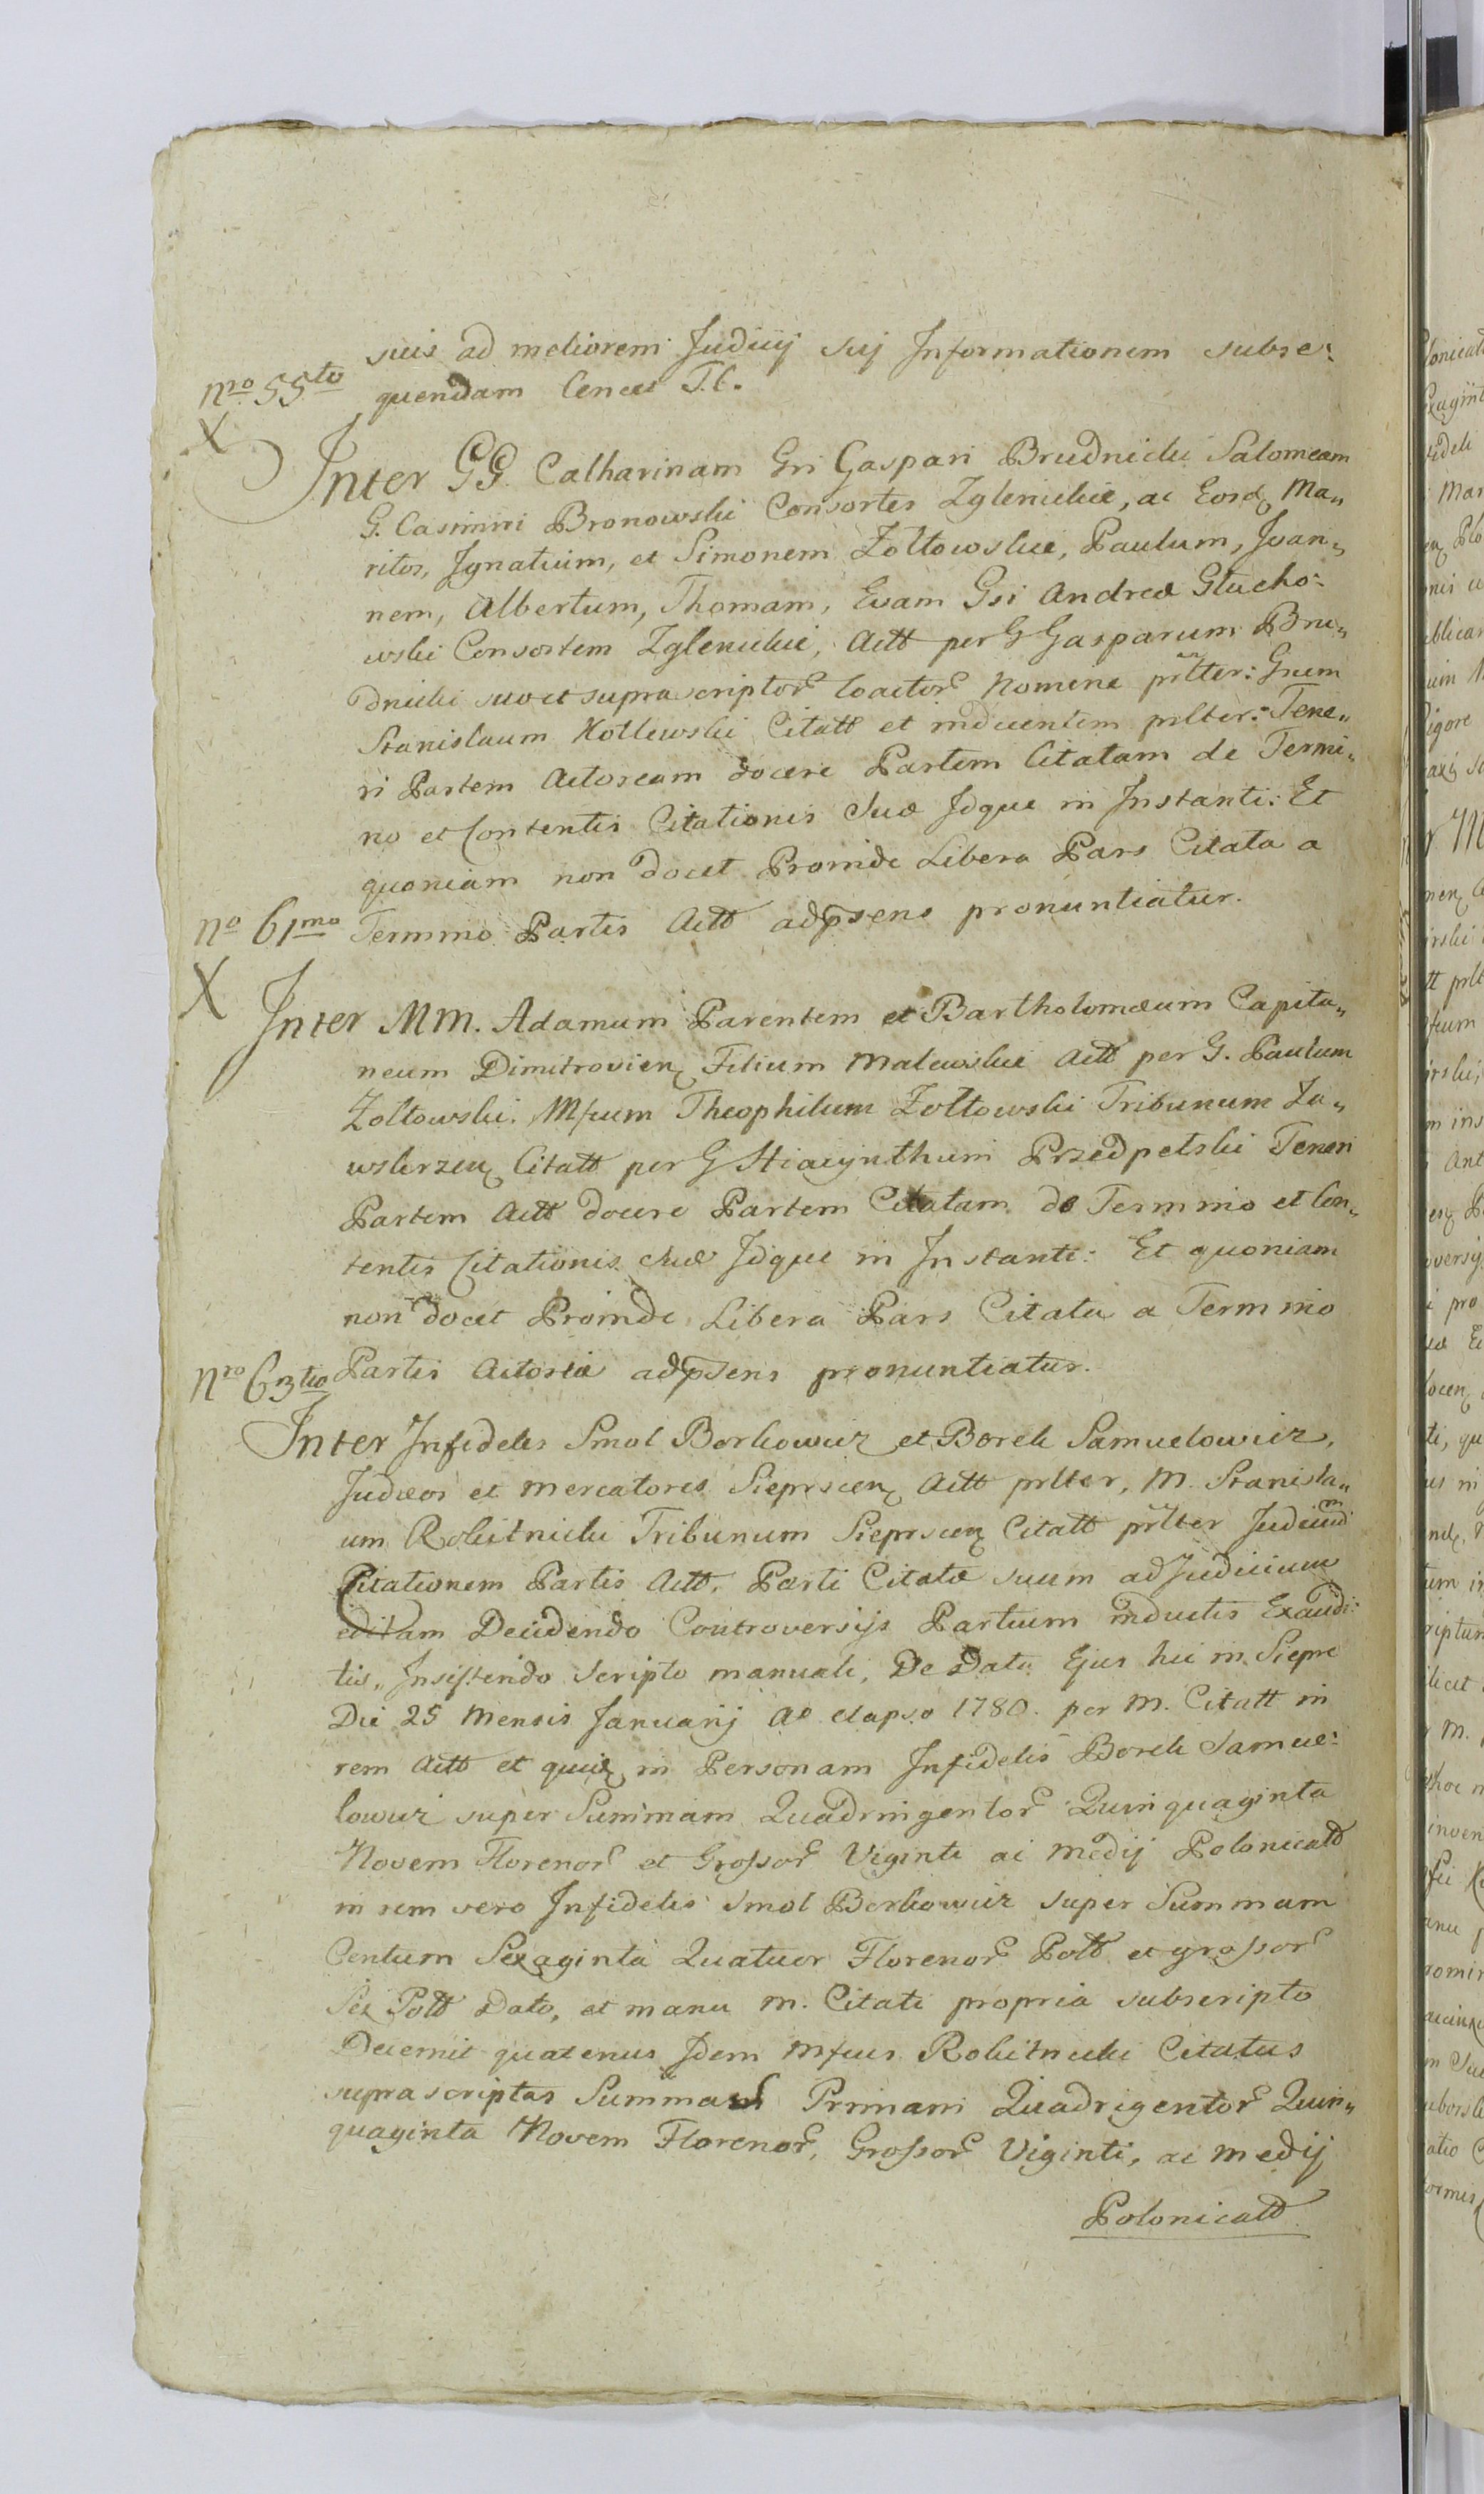 suis ad meliorem Judicij sui Informationem subse:
nro 55to quendam Cences T.C.
X
Inter GG. Catharinam Gsi Gaspari Brudnicki Salomeam
G. Casimiri Bronowski Consortes Zglenickie, ac Eord Ma„
ritos, Ignatium, et Simonem Żołtowskie, Paulum, Joan„
nem, Albertum, Thomam, Evam Gsi Andreæ Głucho:
wski Consortem Zglenickie, Actt per G Gasparum Bru„
dnicki suo et supra scriptor Coactor Nomine prlter: Gnum
Stanislaum Kotlewski Citatt et inducentem prlter: Tene„
ri Partem Actoream docere Partem Citatam de Termi„
no et Contentis Citationis Suæ Idque in Instanti: Et
quoniam non docet Proinde Libera Pars Citata a
no 61mo Termino Partis Actt adpsens pronuntiatur.
X
Inter Mm. Adamum Parentem et Bartholomæum Capita„
neum Dimitrovien Filium Malewskie Actt per G. Paulum
Żołtowski. Mfcum Theophilum Żołtowski Tribunum Za„
wskrzen Citatt per G Hiacynthum Przedpełski Teneri
Partem Actt docere Partem Citatam de Termino et Con„
tentis Citationis Suæ Idque in Instanti: Et quoniam
non docet Proinde Libera Pars Citata a Termino
nro 63tio Partis Actoreæ adpsens pronuntiatur.
Inter Infideles Smol Berkowicz et Borek Samuelowicz,
Judæos et Mercatores Sieprscen Actt prlter, M. Stanisla„
um Rokitnicki Tribunum Sieprscen Citatt prlter Judicium
Citationem Partis Actt. Parti Citatæ suum ad Judicium
editam Decidendo Controversijs Partium inductis Exaudi:
tis, Insistendo scripto manuali, De Data Ejus hic in Siepre
Die 25 Mensis Januarij Ao elapso 1780. per M. Citatt in
rem Actt et quid in Personam Infidelis Borek Samue:
lowicz super Summam Quadringentor Quinquaginta
Novem Florenor et Grossor Viginti ac medij Polonicatt
in rem vero Infidelis Smol Berkowicz super Summam
Centum Sexaginta Quatuor Florenor Pott et grossor
Sex Pott Dato, et manu M. Citati propria subscripto
Decernit quatenus Idem Mfcus Rokitnicki Citatus
suprascriptas Summas Primam Quadrigentor Quin„
quaginta Novem Florenor, Grossor Viginti, ac medij
Polonicatt